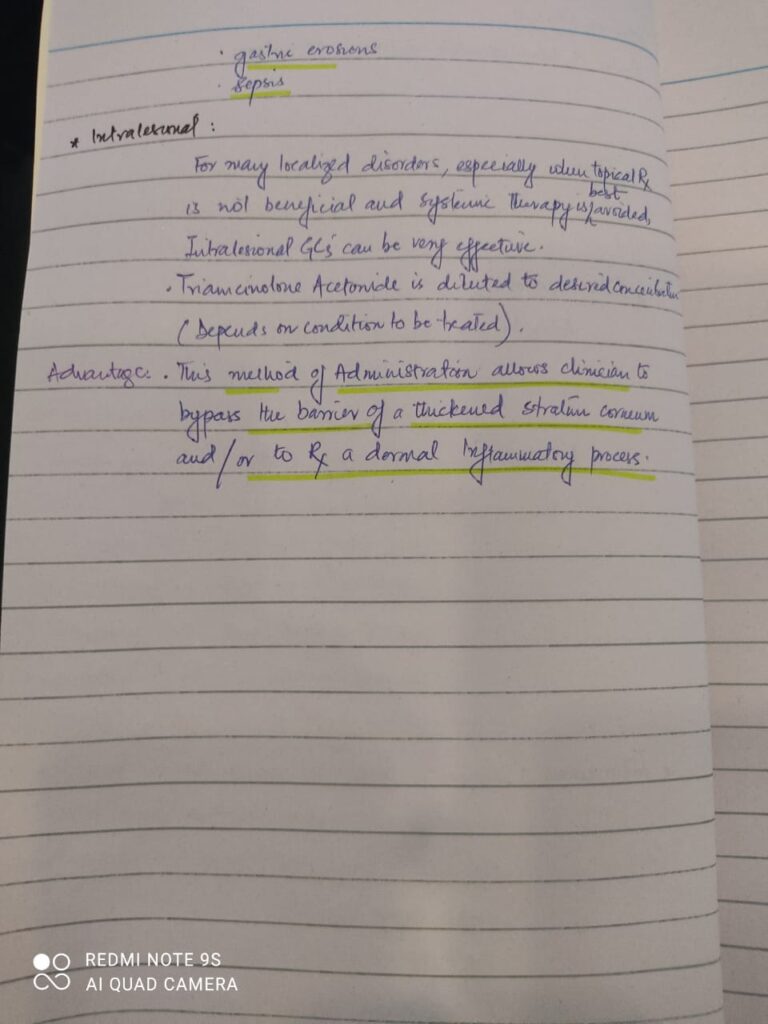 · gastric erosions
· sepsis
* Intralesional :
For many localized disorders, especially when topical Rx
is not beneficial and systemic therapy is best avoided,
Intralesional GCs can be very effective.
· Triamcinolone Acetonide is diluted to desired concentration
(Depends on condition to be treated).
Advantage: · This method of Administration allows clinician to
bypass the barrier of a thickened stratum corneum
and/or to Rx a dermal Inflammatory process.
REDMI NOTE 9S
AI QUAD CAMERA